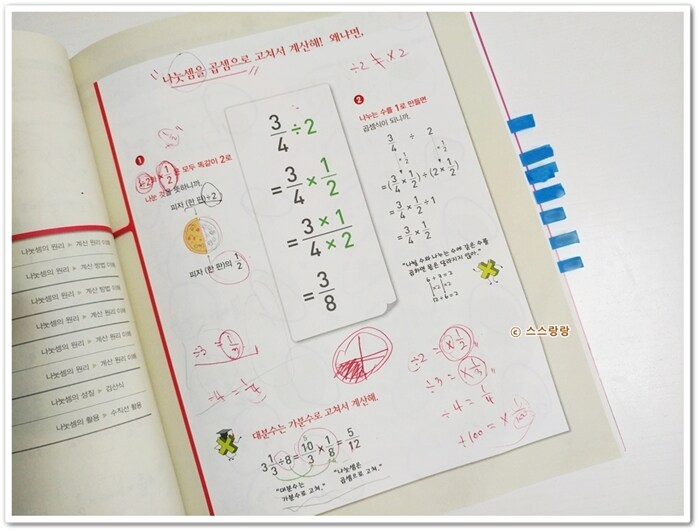 ÷2 ≠ ×2
"나눗셈을 곱셈으로 고쳐서 계산해! 왜냐면,
1
÷2와 × 1/2 은 모두 똑같이 2로
나눈 것을 뜻하니까.
피자 (한 판)÷2
피자 (한 판)의 1/2
3/4 ÷2
= 3/4 × 1/2
= 3×1 / 4×2
= 3/8
2
나누는 수를 1로 만들면
곱셈식이 되니까.
3/4 ÷ 2
=(3/4 × 1/2)÷(2× 1/2)
= 3/4 × 1/2 ÷1
= 3/4 × 1/2
"나뉠 수와 나누는 수에 같은 수를
곱하면 몫은 달라지지 않아."
6÷3=2
×2 ×2
12÷6=2
÷3 = 1/3
÷4 = 1/4
÷2 = × 1/2
÷3 = × 1/3
÷4 = 1/4
÷100 = × 1/100
대분수는 가분수로 고쳐서 계산해.
3 1/3 ÷8= 10/3 × 1/8 = 5/12
"대분수는
가분수로 고쳐."
"나눗셈은
곱셈으로 고쳐."
나눗셈의 원리 > 계산 원리 이해
나눗셈의 원리 > 계산 방법 이해
나눗셈의 원리 > 계산 방법 이해
나눗셈의 원리 > 계산 원리 이해
나눗셈의 원리 > 계산 원리 이해
나눗셈의 원리 > 계산 원리 이해
나눗셈의 성질 > 검산식
나눗셈의 활용 > 수직선 활용
© 스스랑랑